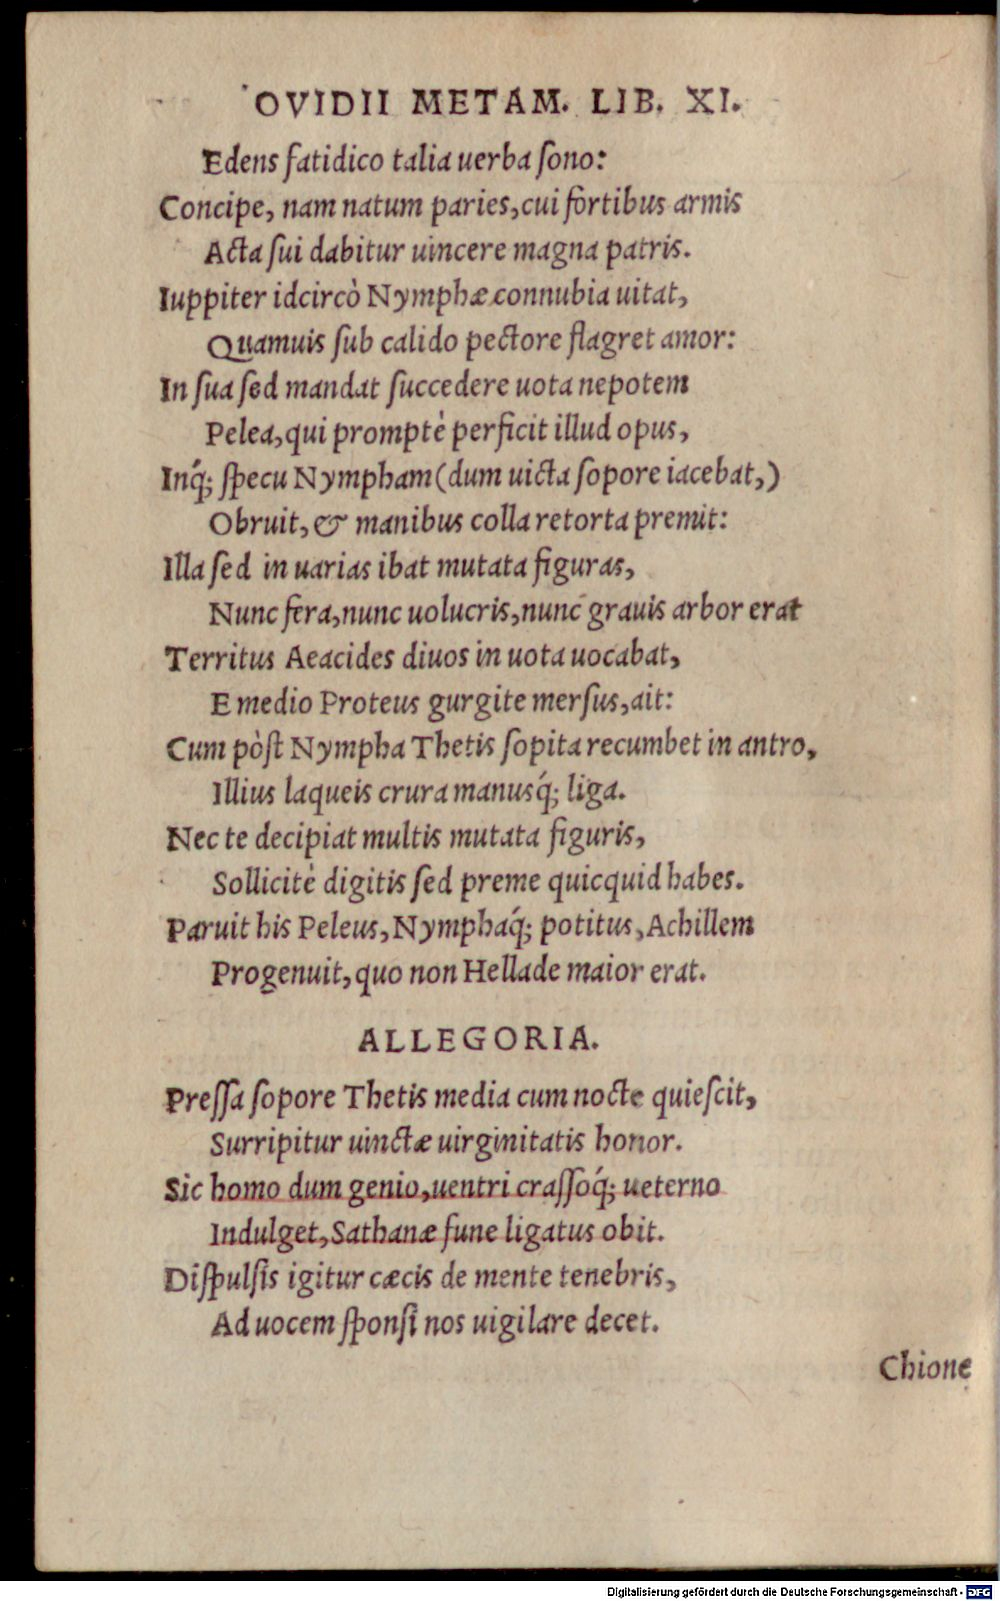 OVIDII METAM. LIB. XI.
Edens fatidico talia uerba ſono:
Concipe, nam natum paries, cui fortibus armis
Acta ſui dabitur uincere magna patris.
Iuppiter idcircò Nymphæ connubia uitat,
Quamuis ſub calido pectore flagret amor:
In ſua ſed mandat ſuccedere uota nepotem
Pelea, qui promptè perficit illud opus,
Inq́; ſpecu Nympham (dum uicta ſopore iacebat,)
Obruit, & manibus colla retorta premit:
Illa ſed in uarias ibat mutata figuras,
Nunc fera, nunc uolucris, nunc grauis arbor erat
Territus Aeacides diuos in uota uocabat,
E medio Proteus gurgite merſus, ait:
Cum pòſt Nympha Thetis ſopita recumbet in antro,
Illius laqueis crura manusq́; liga.
Nec te decipiat multis mutata figuris,
Sollicitè digitis ſed preme quicquid habes.
Paruit his Peleus, Nymphaq́; potitus, Achillem
Progenuit, quo non Hellade maior erat.
ALLEGORIA.
Preſſa ſopore Thetis media cum nocte quieſcit,
Surripitur uinctæ uirginitatis honor.
Sic homo dum genio, uentri craſſoq́; ueterno
Indulget, Sathanæ fune ligatus obit.
Diſpulſis igitur cæcis de mente tenebris,
Ad uocem ſponſi nos uigilare decet.
Chione
Digitalisierung gefördert durch die Deutsche Forschungsgemeinschaft - DFG